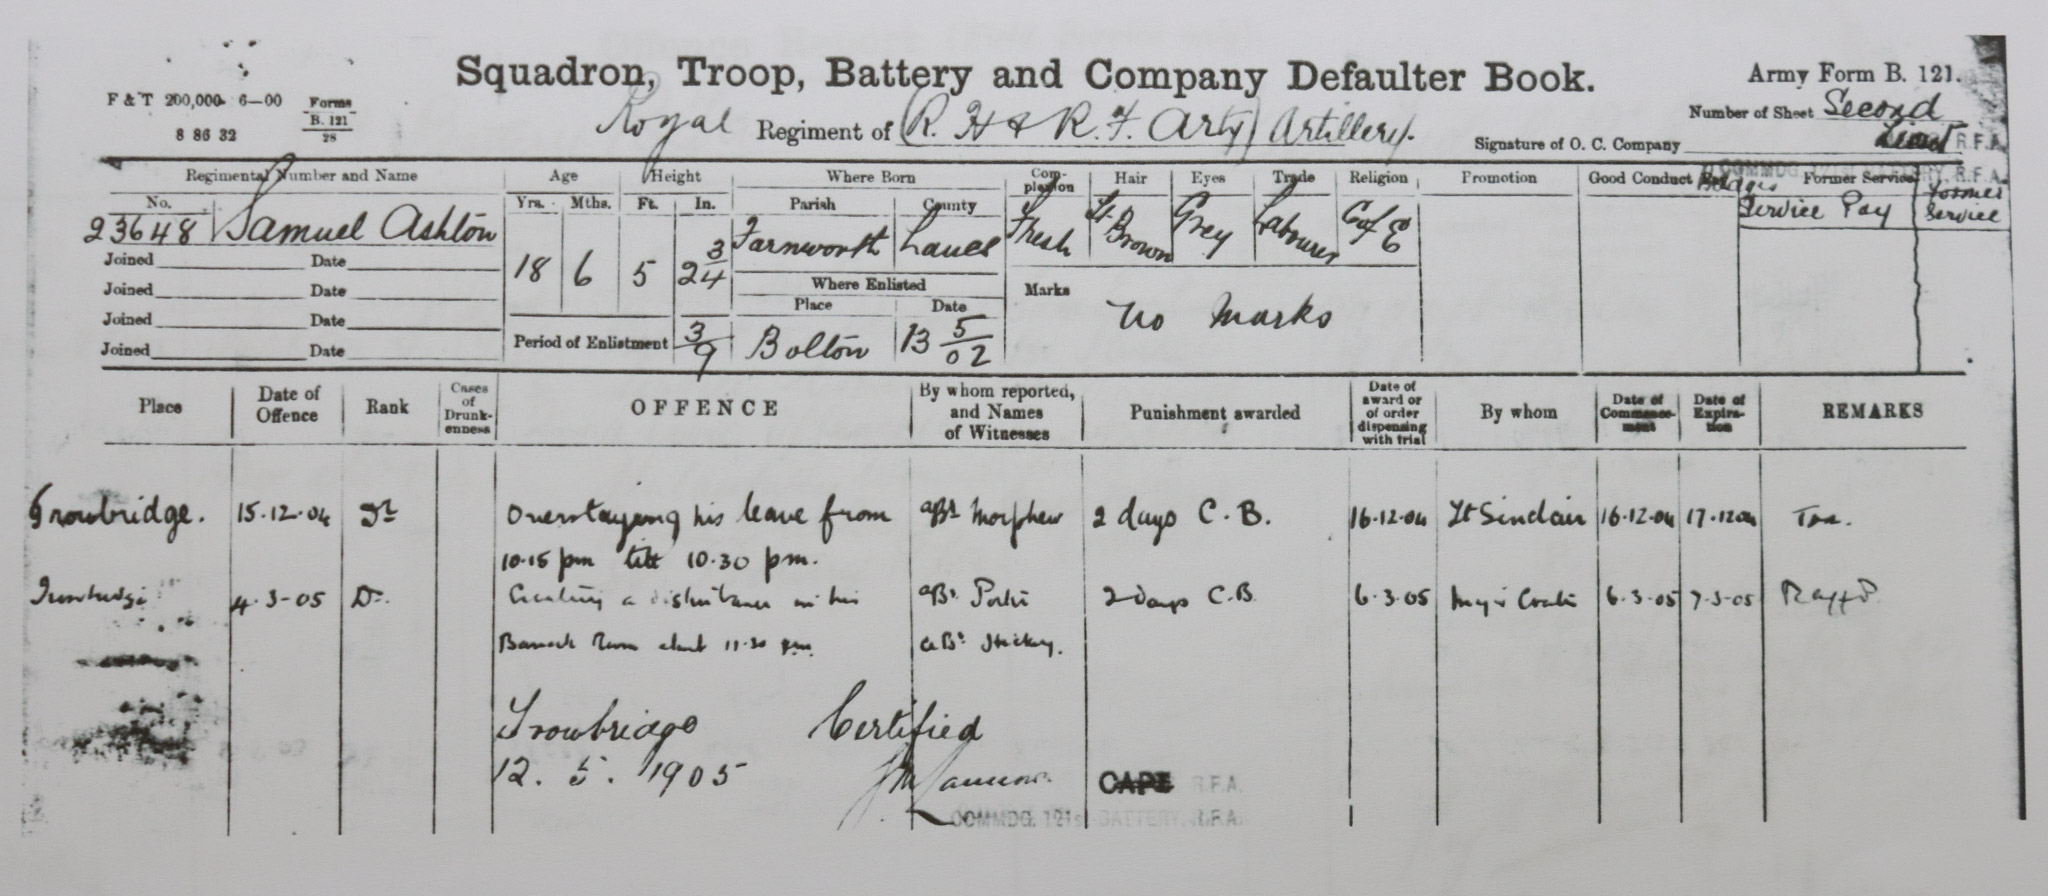 Squadron, Troop, Battery and Company Defaulter Book.
Army Form B. 121.
F & T 200,000 6—00 Forms B. 121 28
8 86 32
Number of Sheet Second
Royal Regiment of (R. H & R. F. Arty) Artillery.
Signature of O. C. Company R.F.A.
COMMDG. 121st BATTERY, R.F.A.
Regimental Number and Name Age Height Where Born Complexion Hair Eyes Trade Religion Promotion Good Conduct Badges Former Service
Service Pay Former Service
No. Yrs. Mths. Ft. In. Parish County
23648 Samuel Ashton 18 6 5 2 3/4 Farnworth Lancs Fresh Lt Brown Grey Labourer C of E
Joined Date
Joined Date
Where Enlisted Marks
Place Date
No Marks
Joined Date
Joined Date
Period of Enlistment 3/9 Bolton 13 5/02
Place Date of Offence Rank Cases of Drunkenness OFFENCE By whom reported, and Names of Witnesses Punishment awarded Date of award or of order dispensing with trial By whom Date of Commencement Date of Expiration REMARKS
Trowbridge. 15.12.04 Dr Overstaying his leave from aBr Morphew 2 days C.B. 16.12.04 Lt Sinclair 16.12.04 17.12.04
10.15 pm till 10.30 pm.
Trowbridge 4.3-05 Dr. Creating a disturbance in his aBr 2 days C.B. 6.3.05 6.3.05 7.3.05
Barrack Room about 11.30 pm. a Br Hickey.
Trowbridge Certified
12. 5. 1905
CAPT R.F.A.
COMMDG. 121st BATTERY, R.F.A.